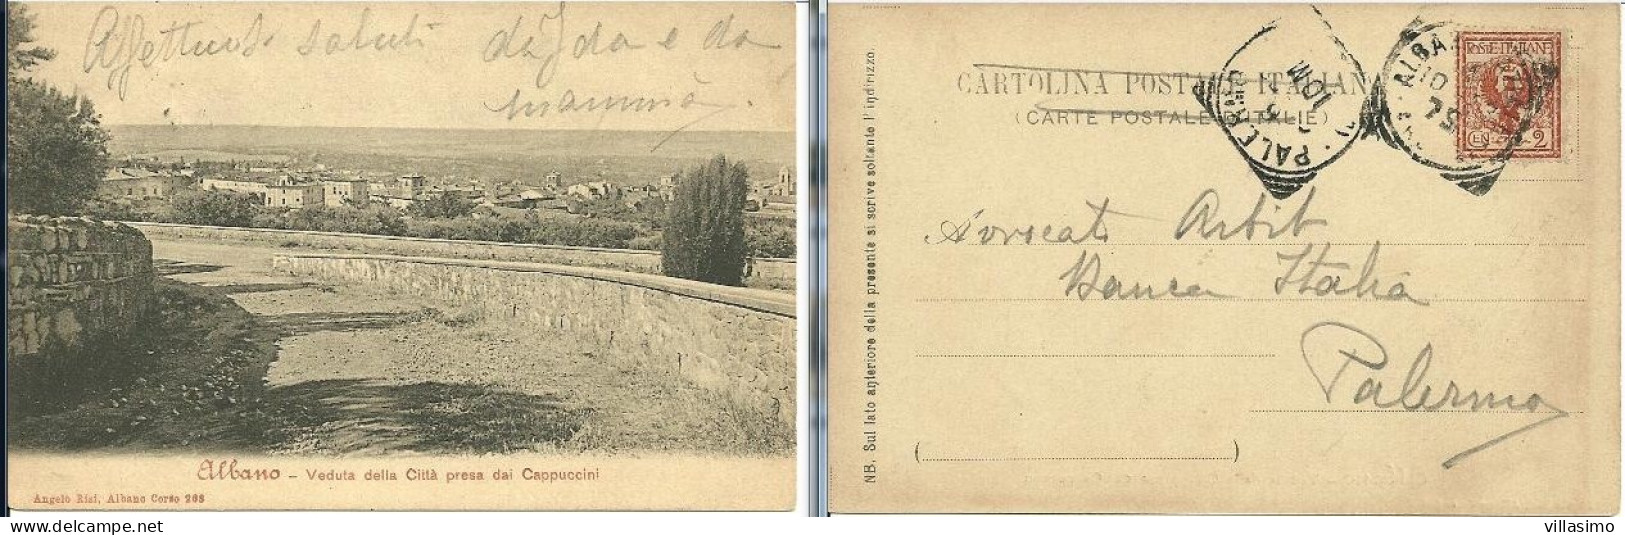 Affettuosi saluti da Ida e da
mammà.
Albano – Veduta della Città presa dai Cappuccini
Angelo Risi, Albano Corso 208
NB. Sul lato anteriore della presente si scrive soltanto l'indirizzo.
CARTOLINA POSTALE ITALIANA
(CARTE POSTALE D'ITALIE)
PALERMO
POSTE·ITALIANE
CEN. 2
Avvocato Arbit
Banca Italia
Palermo
villasimo